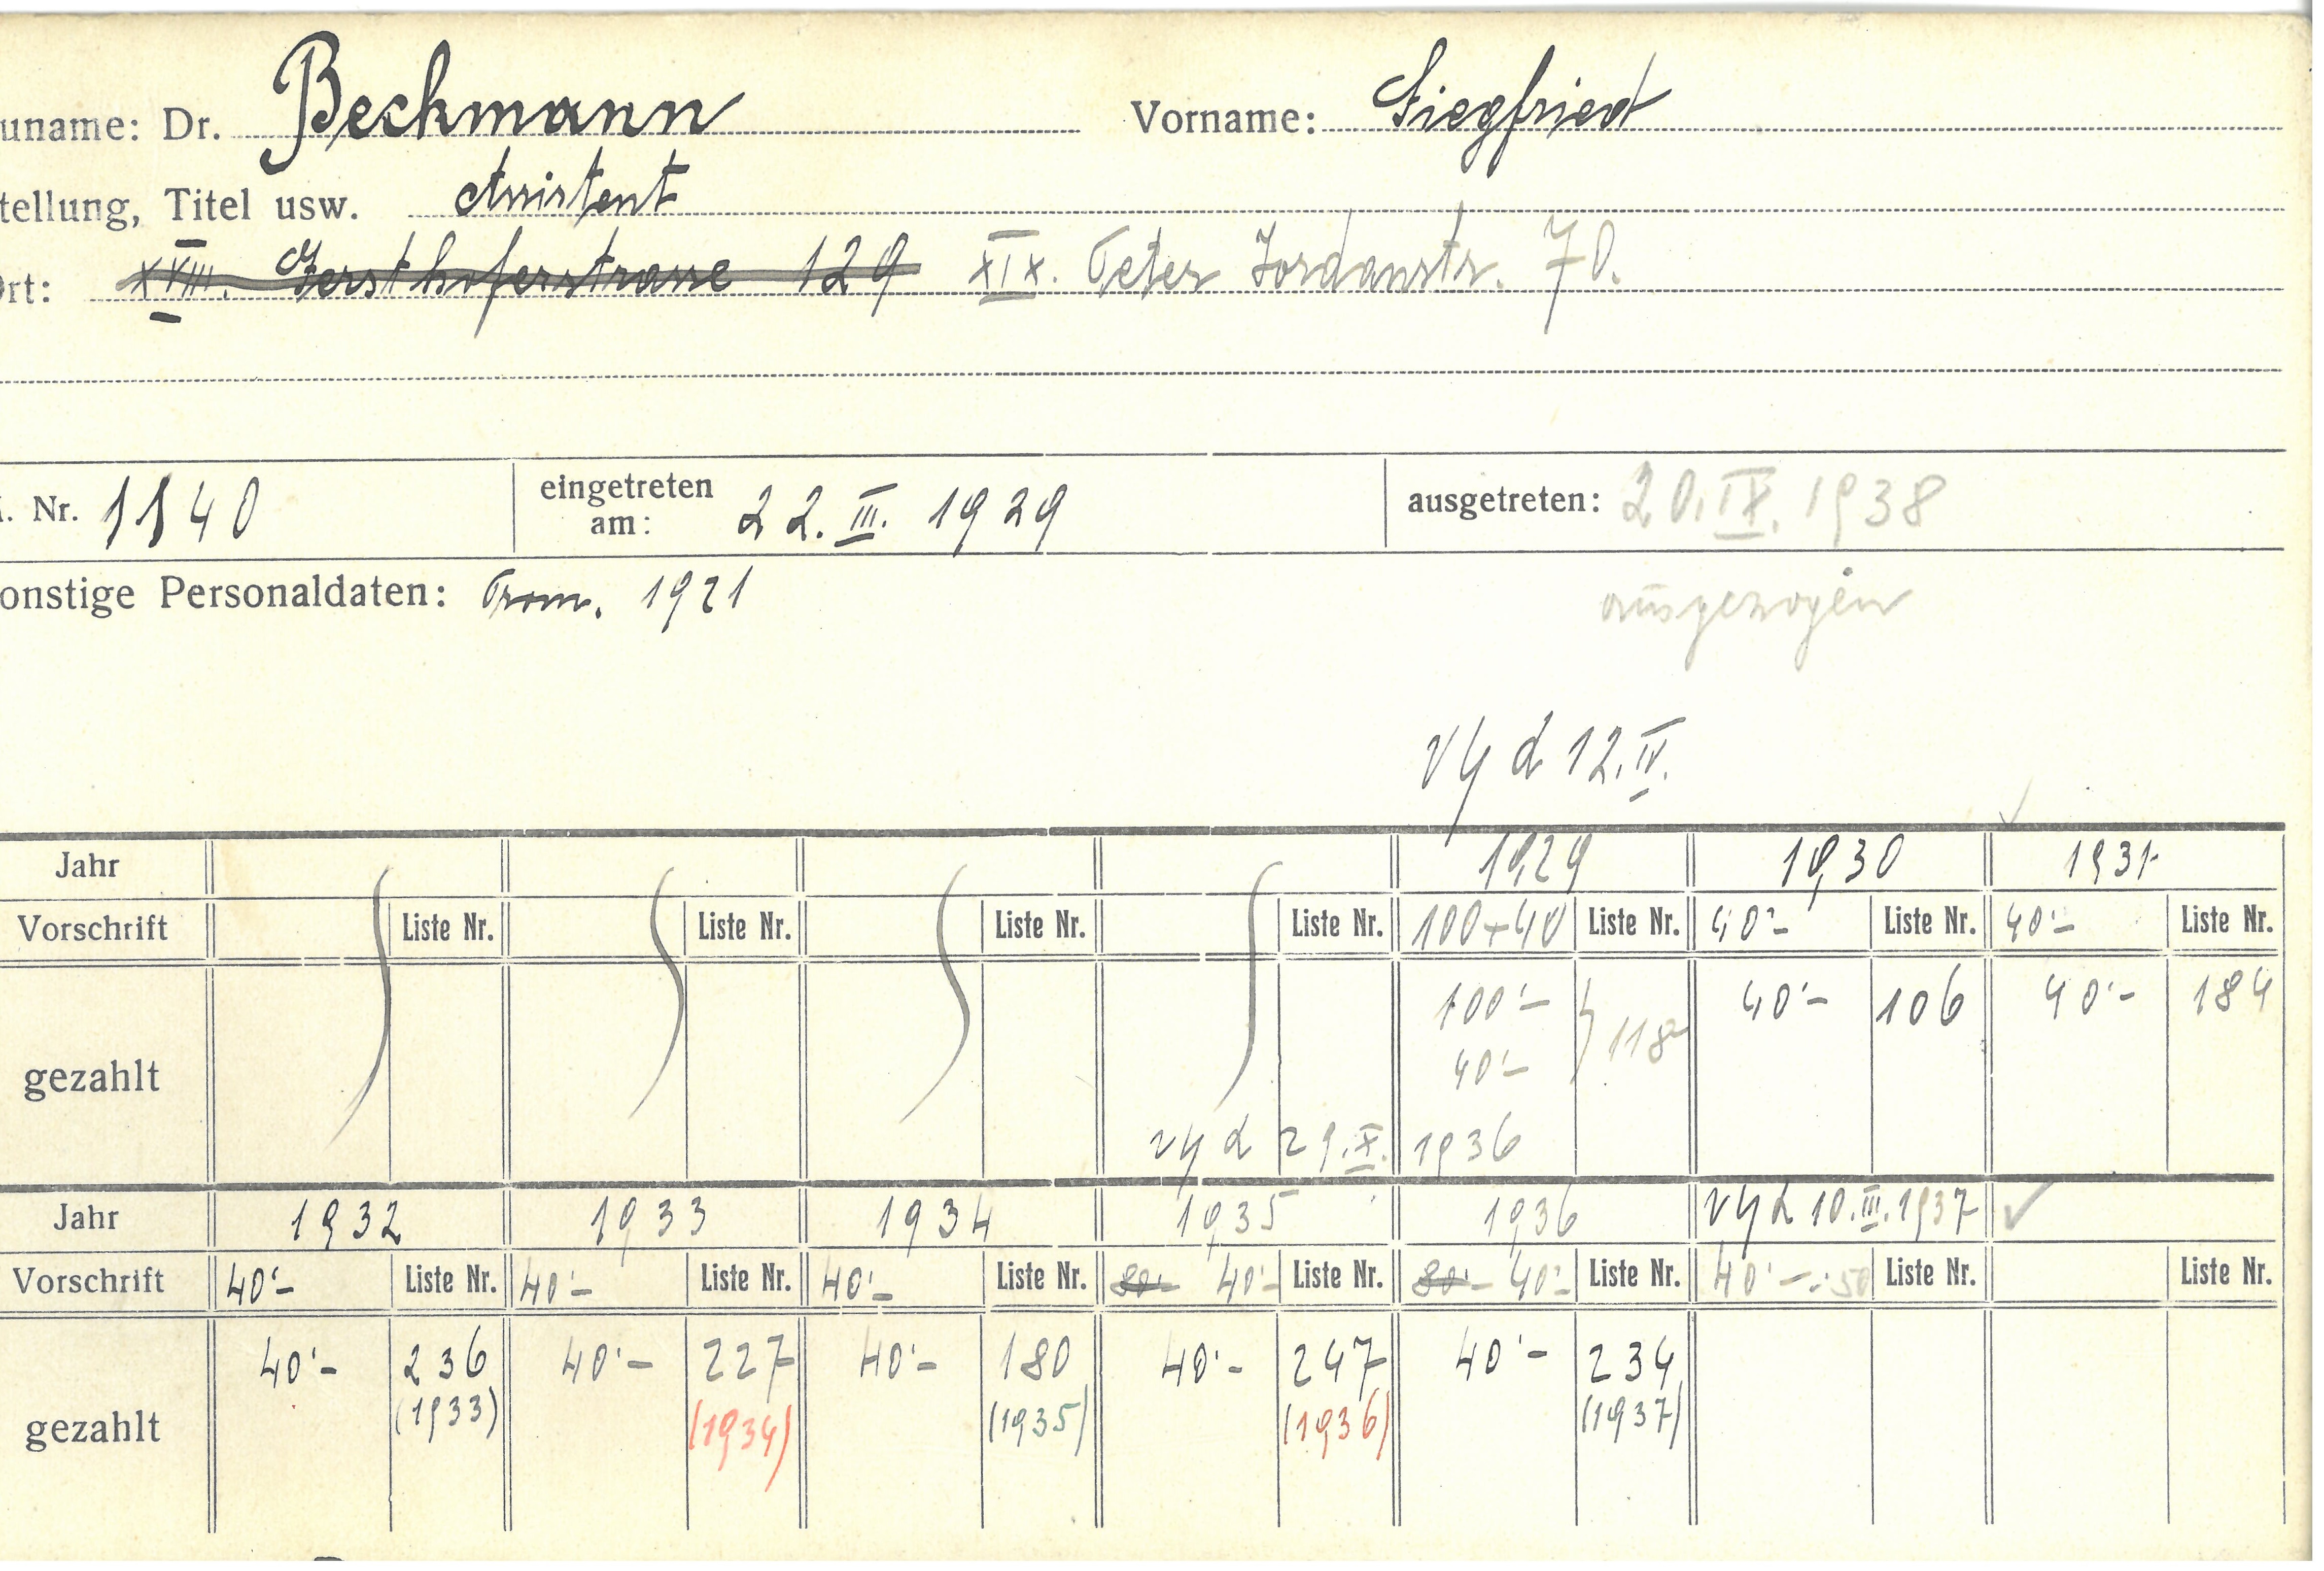 uname: Dr. Beckmann Vorname: Siegfried
tellung, Titel usw. Assistent
Ort: XVIII. Gersthoferstrasse 129 XIX. Peter Jordanstr. 70.
. Nr. 1140 eingetreten am: 22. III. 1929 ausgetreten: 20. IX. 1938
onstige Personaldaten: Prom. 1921 ausgezogen
d 12. IV.
Jahr 1929 1930 1931
Vorschrift Liste Nr. Liste Nr. Liste Nr. Liste Nr. 100+40 Liste Nr. 40'- Liste Nr. 40'- Liste Nr.
gezahlt 100'- 40'- 118a 40'- 106 40'- 184
d 29. X. 1936
Jahr 1932 1933 1934 1935 1936 10. III. 1937
Vorschrift 40'- Liste Nr. 40'- Liste Nr. 40'- Liste Nr. 80'- 40'- Liste Nr. 80'- 40'- Liste Nr. 40'- Liste Nr. Liste Nr.
gezahlt 40'- 236 40'- 227 40'- 180 40'- 247 40'- 234
(1933) (1934) (1935) (1936) (1937)